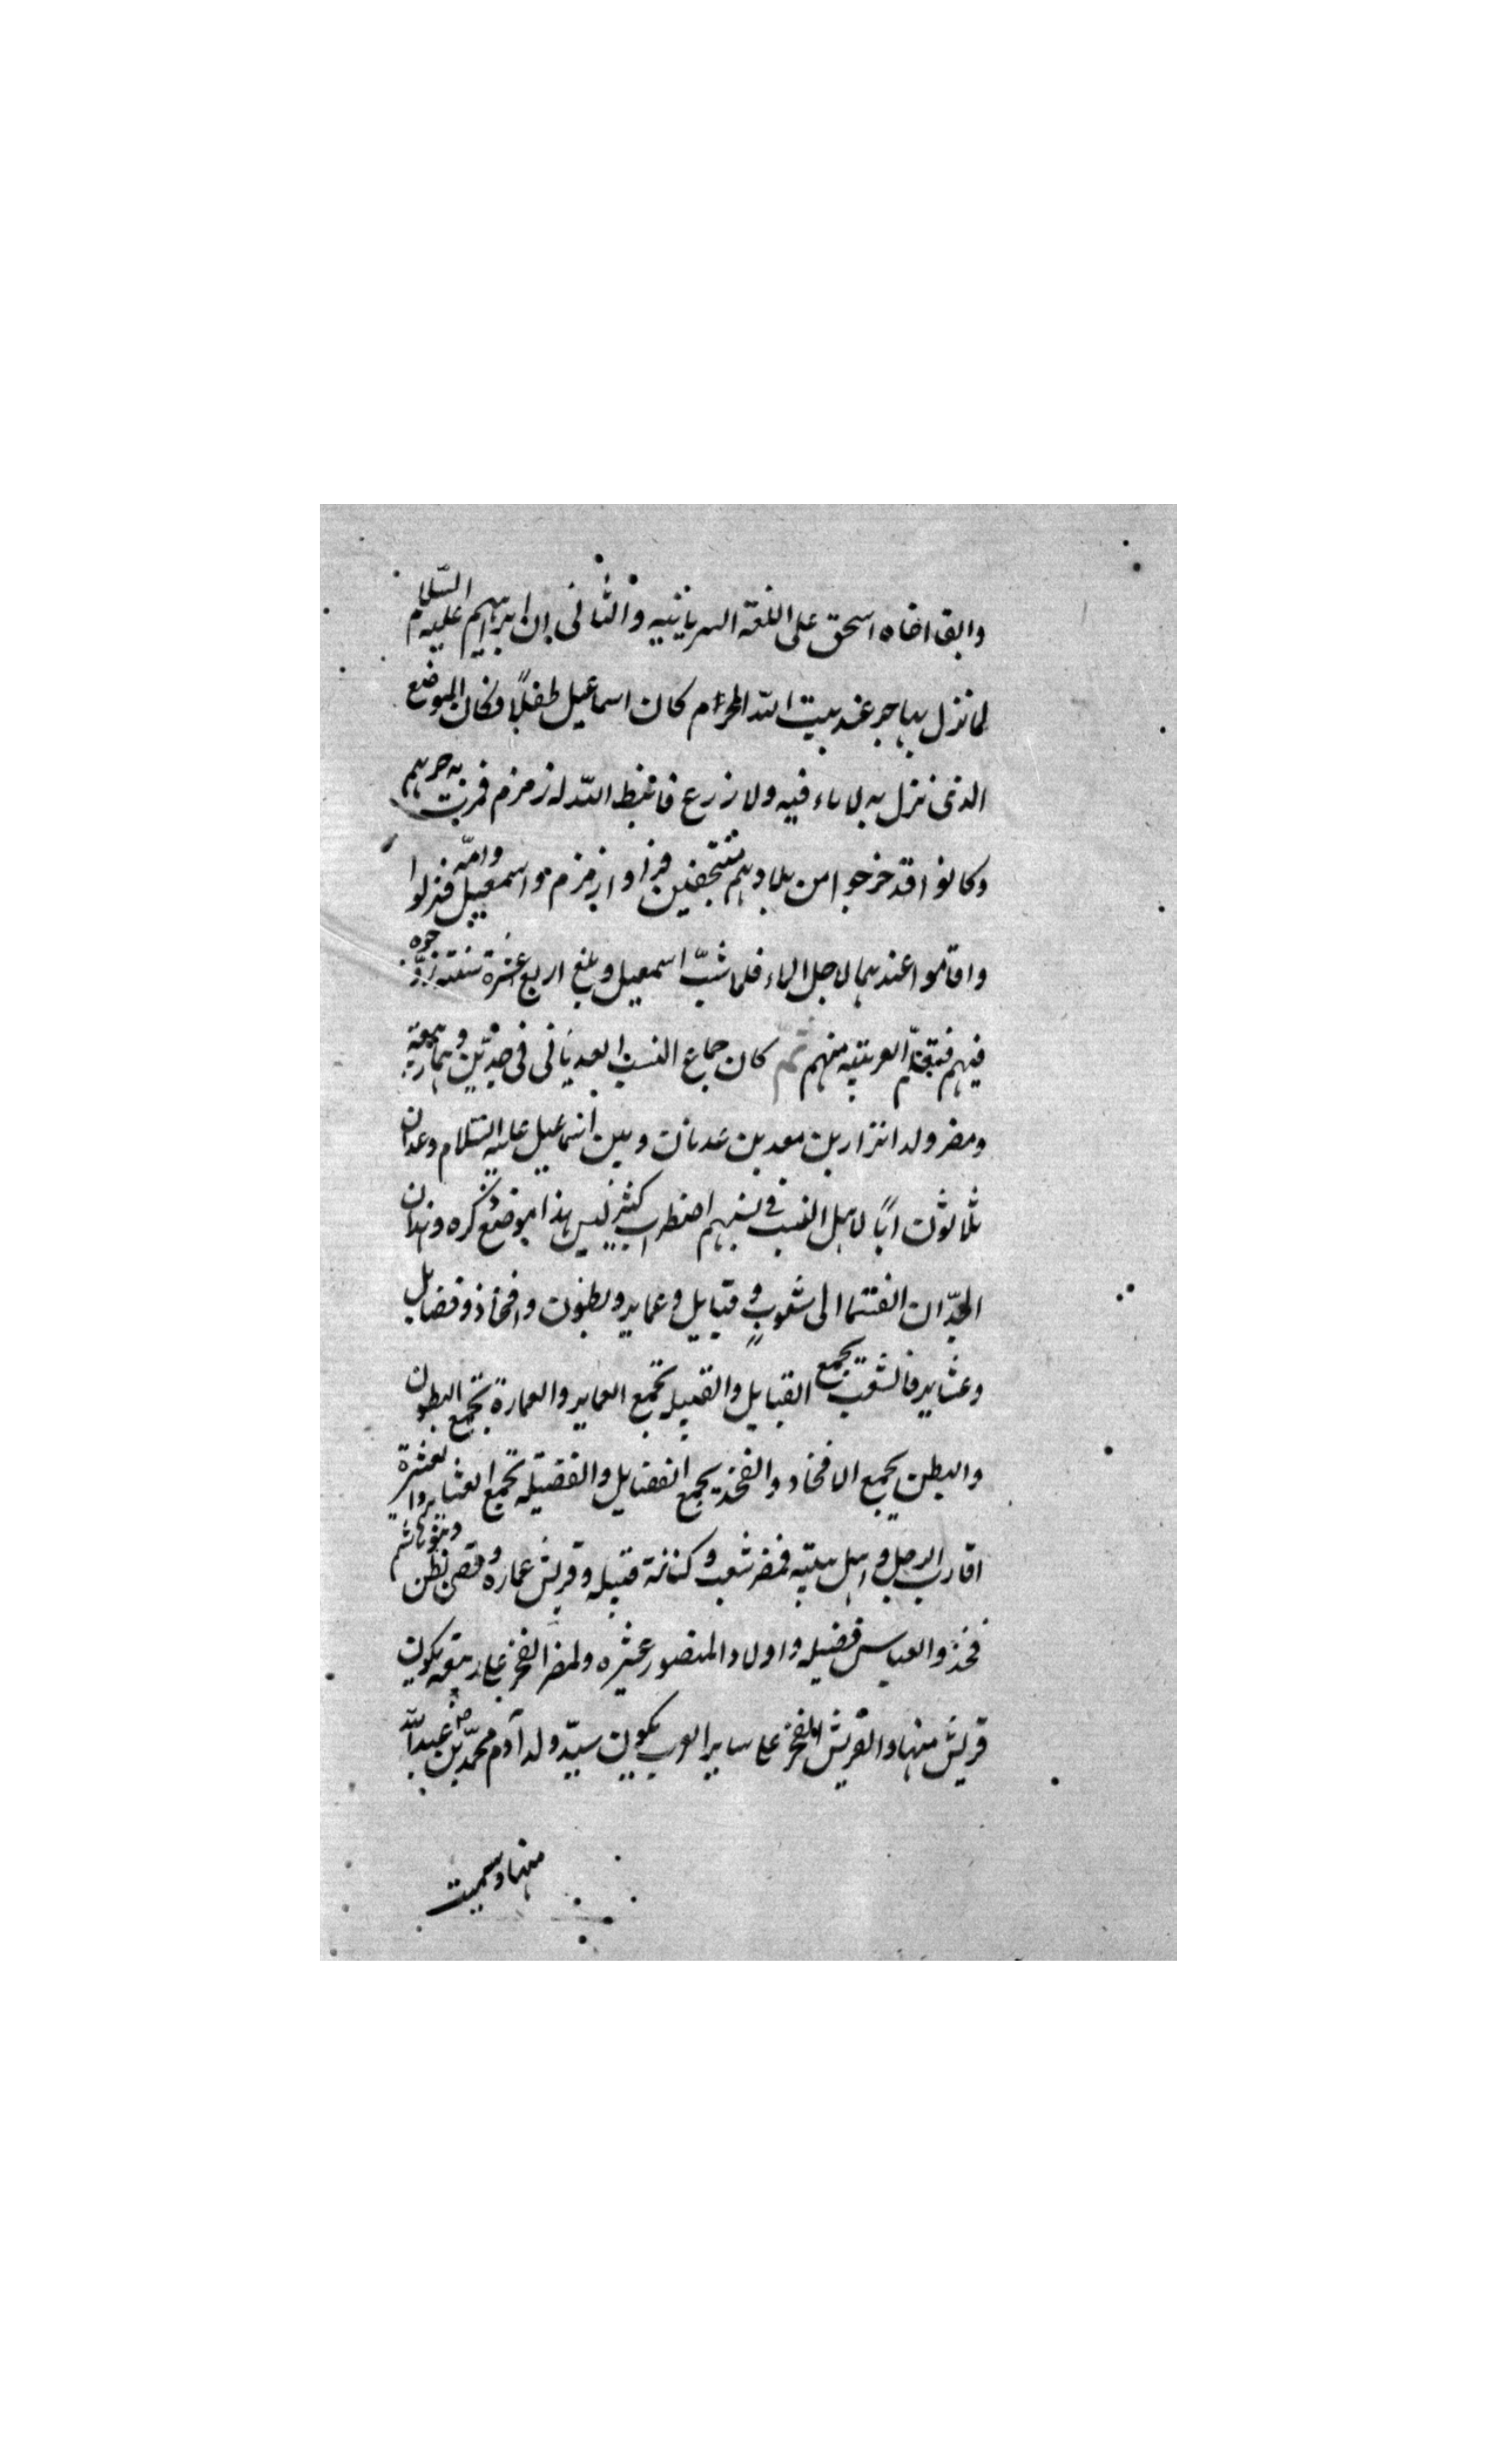 وابقا اخاه اسحق على اللغة السريانية والثانى ان ابراهيم عليه السلام
لما نزل بهاجر عند بيت الله الحرام كان اسماعيل طفلاً فكان الموضع
الذى نزل به لا ماء فيه ولا زرع فانبط الله له زمزم فمرت به جرهم
وكانوا قد خرجوا من بلادهم فراوا زمزم واسمعيل وامّه فنزلوا
واقاموا عندهما لاجل الماء فلما شبّ اسمعيل وبلغ اربع عشرة سنة زوّجوه
فيهم فتعلّم العربية منهم ثمّ كان جماع النسب العدنانى فى جدّين وهما ربيعة
ومضر ولدا نزار بن معد بن عدنان وبين اسماعيل عليه السّلام وعدنان
ثلاثون اباً لاهل النسب فى نسبهم اضطراب كثير ليس هذا موضع ذكره وهذان
الجدّان انقسما الى شعوبٍ وقبايل وعماير وبطون وافخاذ وفصايل
وعشاير فالشعب يجمع القبايل والقبيله تجمع العماير والعمارة تجمع البطون
والبطن يجمع الافخاد والفخذ يجمع الفضايل والفضيله تجمع العشاير والعشيرة
اقارب الرجل واهل بيته فمضر شعب وكنانة قبيله وقريش عماره وقصى بطن وبنو هاشم
فخذ والعباس فضيله واولاد المنصور عشيره ولمضر الفخر على ربيعة بكون
قريش منها والقريش الفخر على ساير العرب بكون سيّد ولد آدم محمّد بن عبد الله
منها وسميت